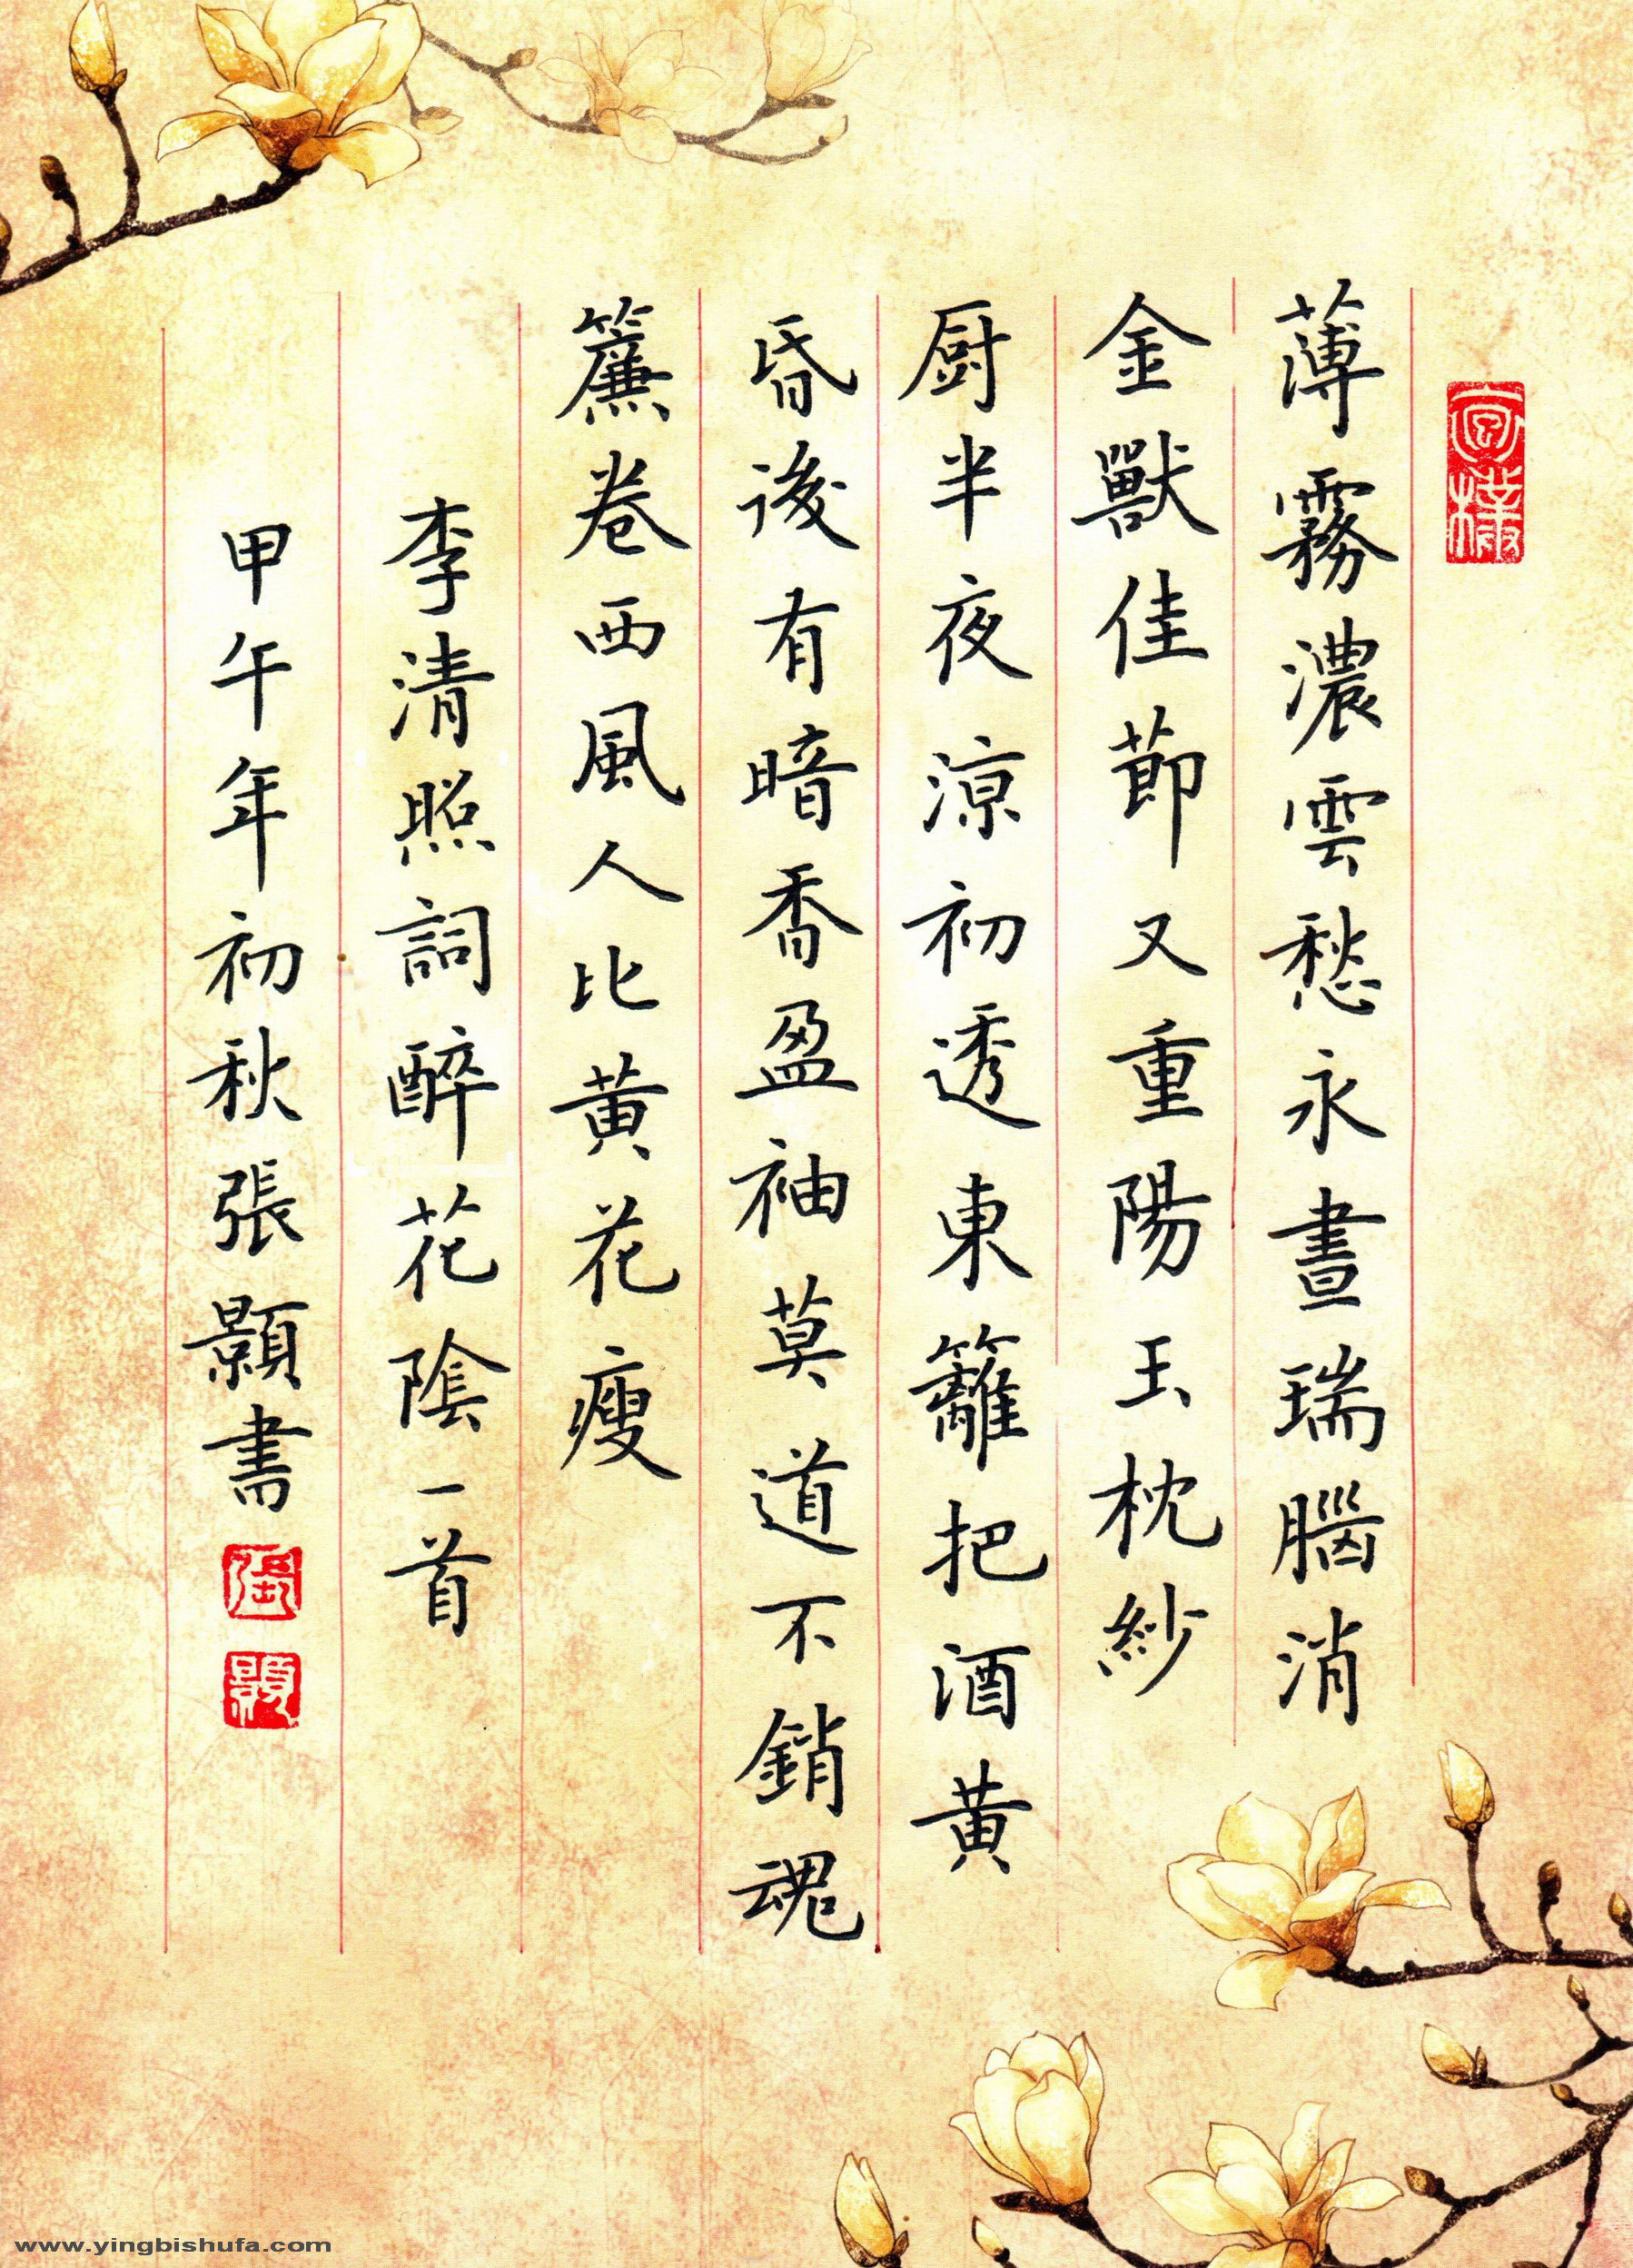 薄霧濃雲愁永晝瑞腦消
金獸佳節又重陽玉枕紗
厨半夜涼初透東籬把酒黃
昏後有暗香盈袖莫道不銷魂
簾卷西風人比黃花瘦
李清照詞醉花陰一首
甲午年初秋張顥書
www.yingbishufa.com